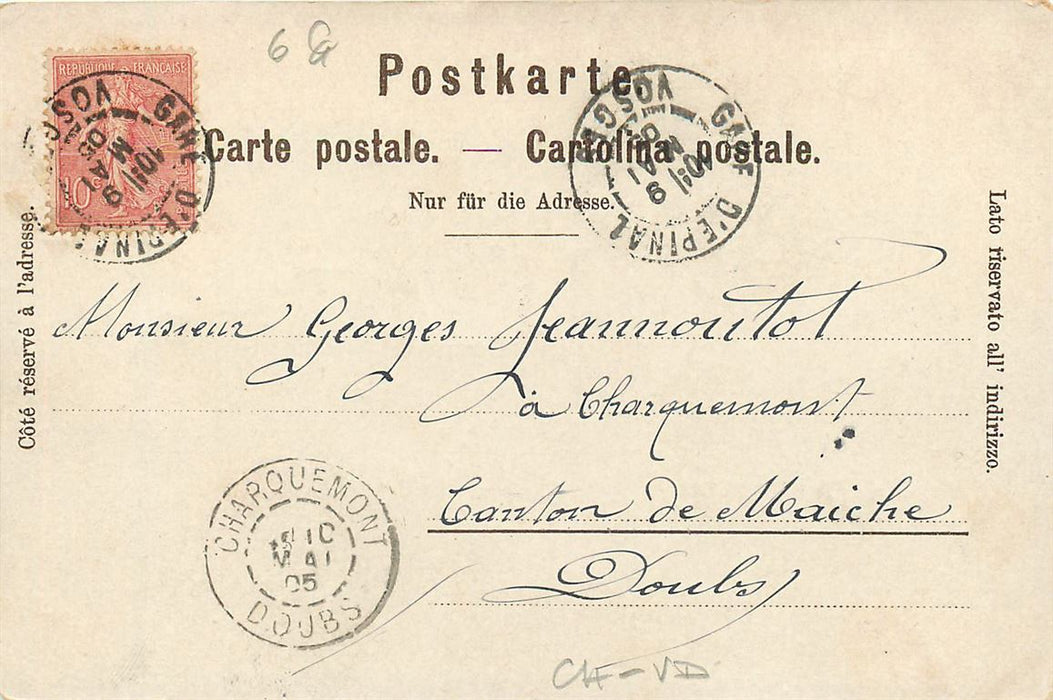 6
Postkarte.
Carte postale. — Cartolina postale.
Nur für die Adresse.
Côté réservé à l'adresse.
Lato riservato all' indirizzo.
REPUBLIQUE FRANÇAISE
10
GARE D'EPINAL
VOSGES
9 MAI 05
GARE D'EPINAL
VOSGES
9 MAI 05
Monsieur Georges Jeannoutot
à Charquemont
Canton de Maiche
Doubs
CHARQUEMONT
10
MAI
05
DOUBS
CH-VD